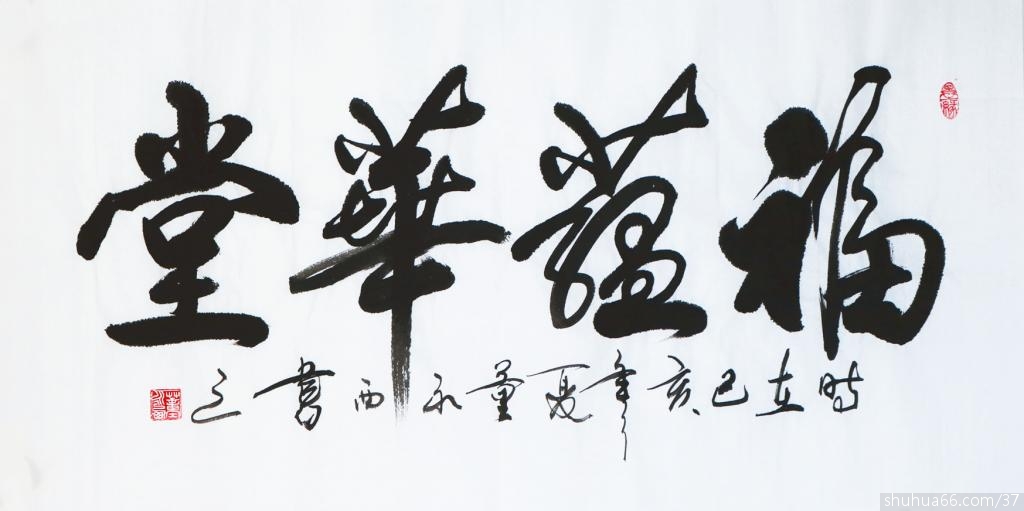 福蘊華堂
時在己亥年夏董永西書之
shuhua66.com/37